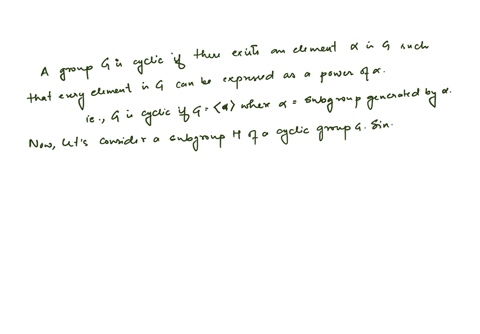 A group G is cyclic if there exists an element α in G such
that every element in G can be expressed as a power of α.
ie., G is cyclic if G = ⟨α⟩ where α = subgroup generated by α.
Now, let's consider a subgroup H of a cyclic group G. Sin.